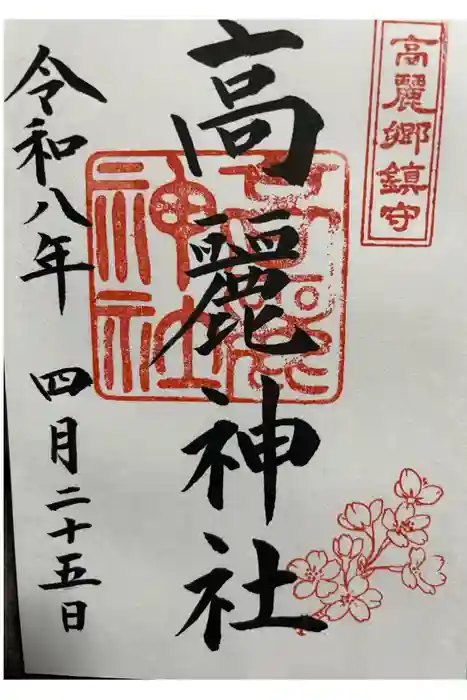 高麗郷鎮守
高麗神社
高麗神社
令和八年 四月二十五日